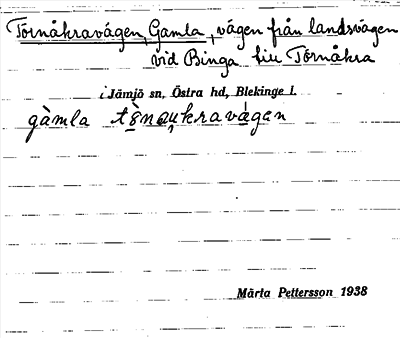 Törnåkravägen, Gamla, vägen från landsvägen
vid Binga till Törnåkra
i Jämjö sn, Östra hd, Blekinge l.
gàmla tö̀nau̯kravá̈gen
Märta Pettersson 1938